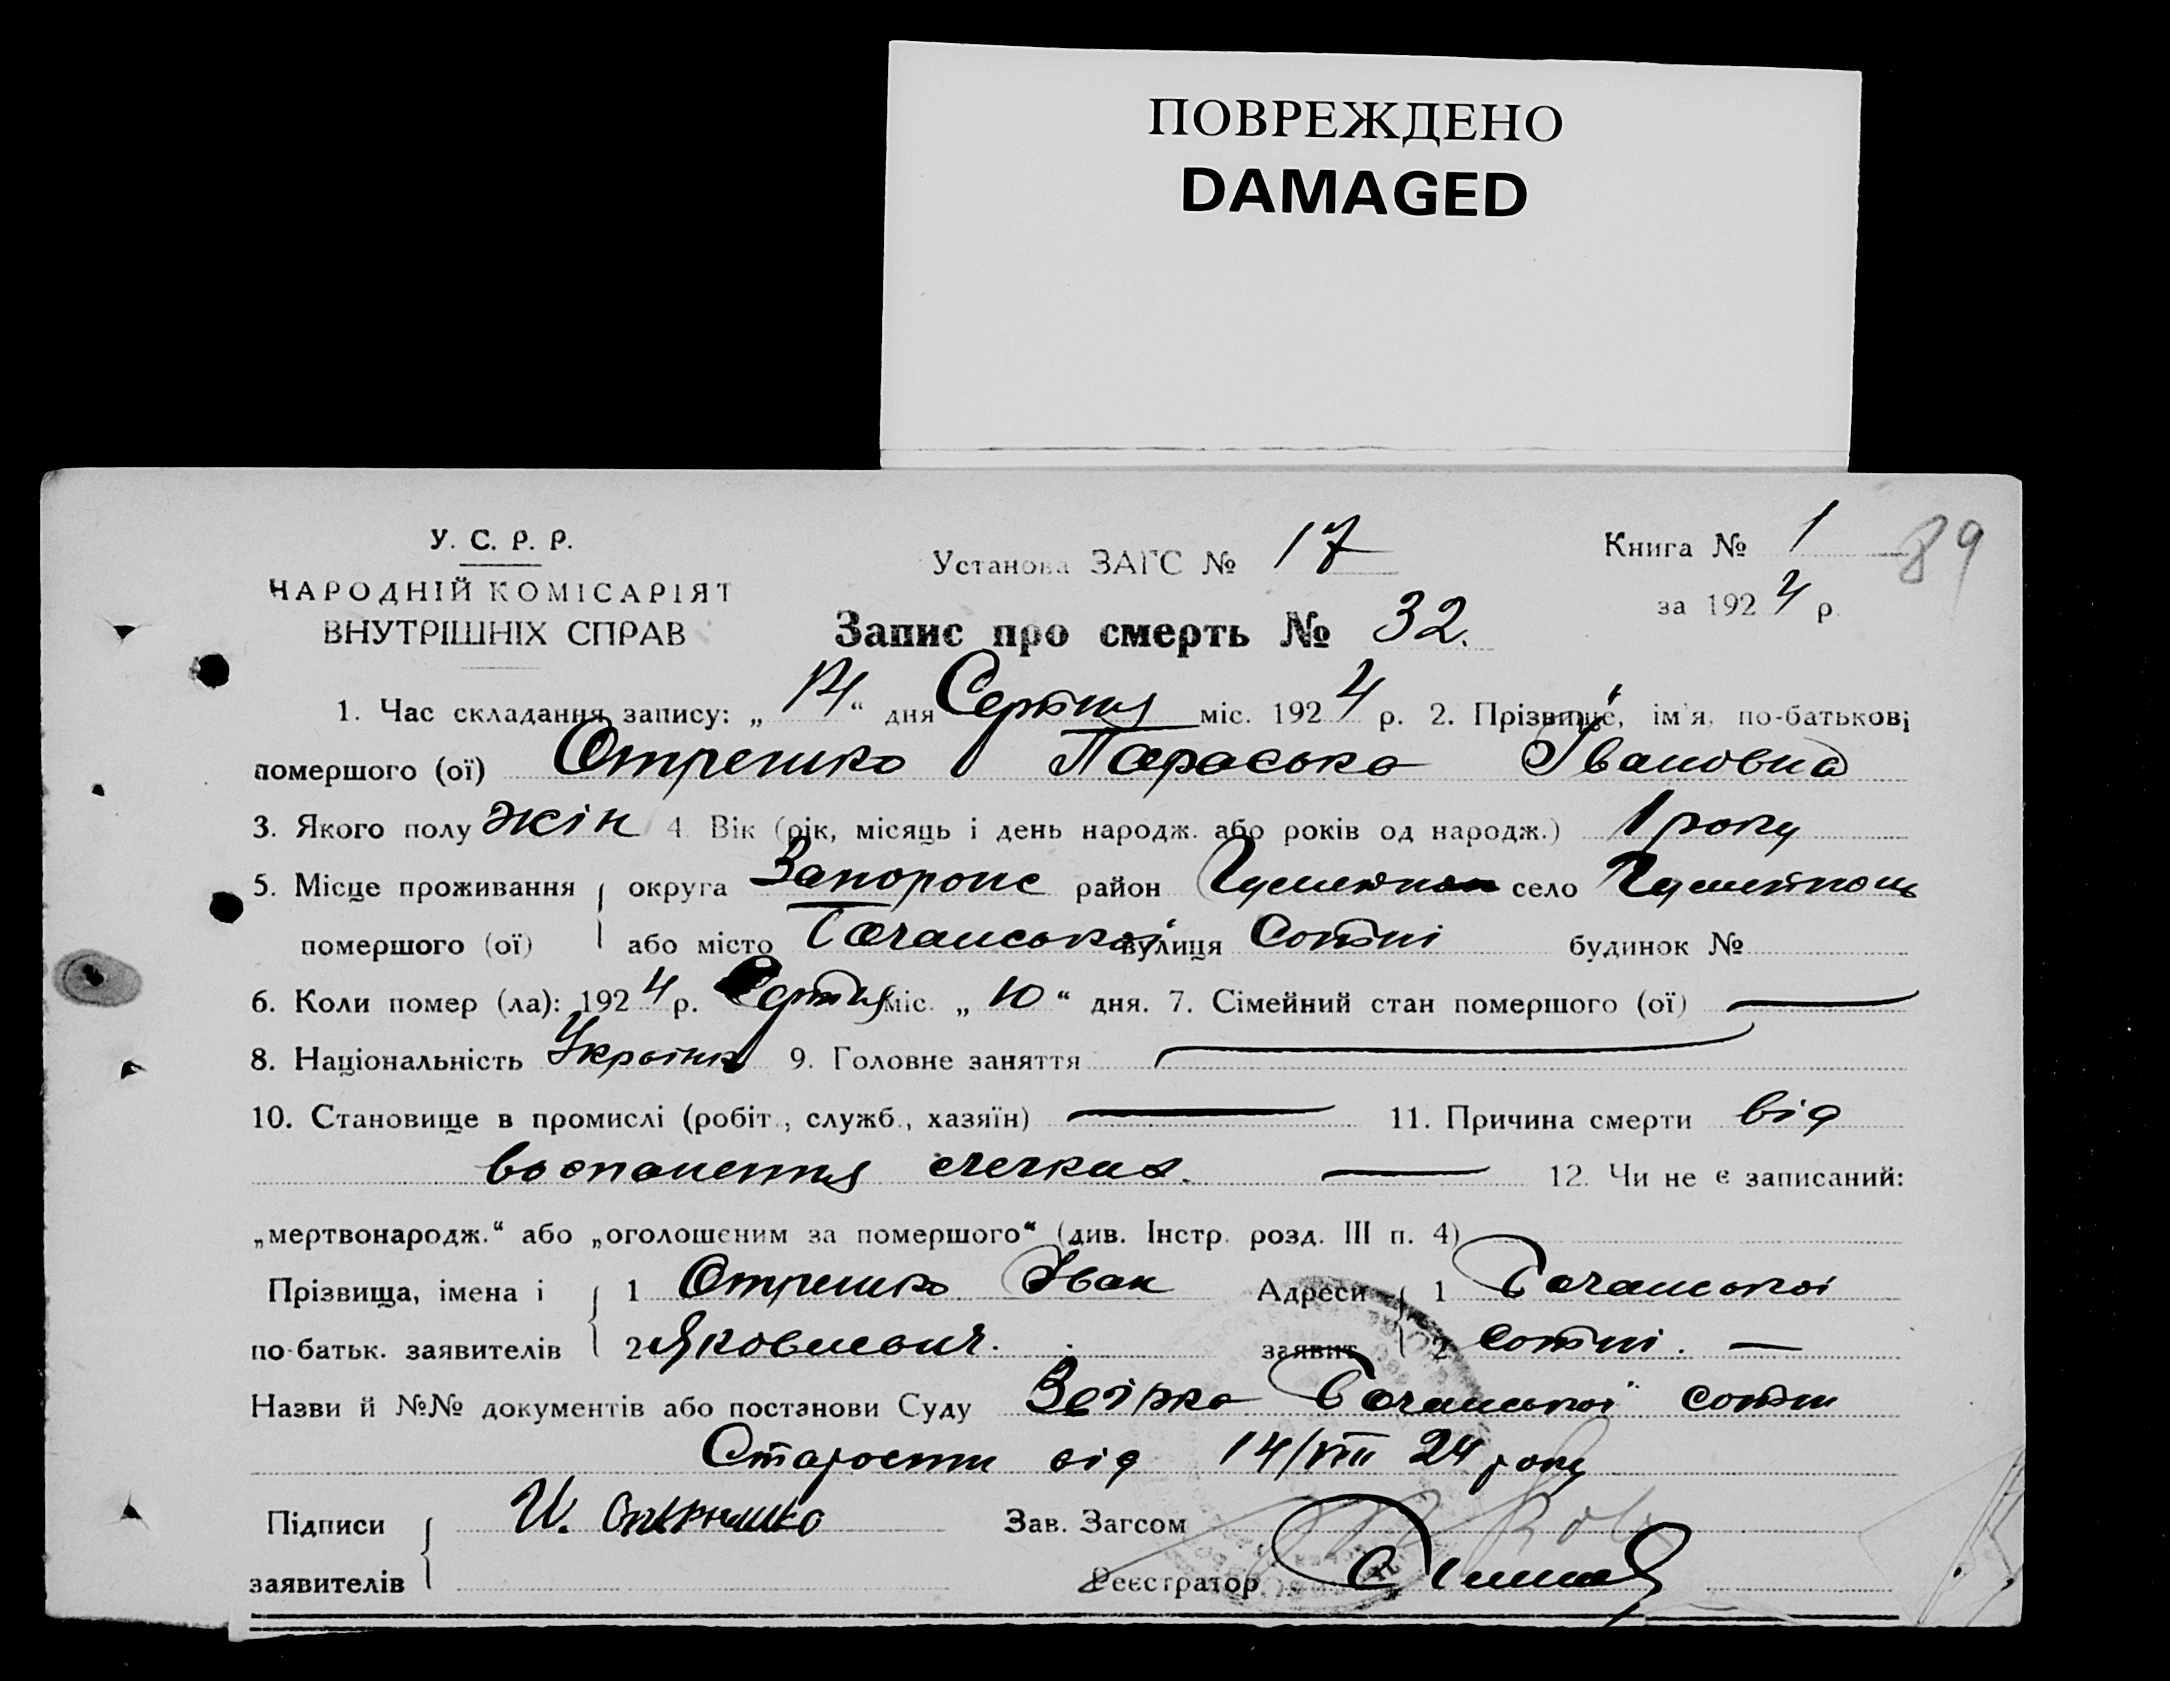 ПОВРЕЖДЕНО
DAMAGED
У. С. Р. Р.
НАРОДНІЙ КОМІСАРІЯТ
ВНУТРІШНІХ СПРАВ
Установа ЗАГС № 17
Книга № 1 89
за 1924 р.
Запис про смерть № 32.
1. Час складання запису: „14“ дня Серпня міс. 1924 р. 2. Прізвище, ім'я, по-батькові
помершого (ої) Отрешко Параська Івановна
3. Якого полу жін 4. Вік (рік, місяць і день народж. або років од народж.) 1 року
5. Місце проживання округа Запорож район село
помершого (ої) або місто вулиця Сотні будинок №
6. Коли помер (ла): 1924 р. Серпня міс. „10“ дня. 7. Сімейний стан помершого (ої) —
8. Національність Українка 9. Головне заняття —
10. Становище в промислі (робіт., служб., хазяїн) — 11. Причина смерти від
воспаления —
12. Чи не є записаний:
„мертвонародж.“ або „оголошеним за помершого“ (див. Інстр. розд. III п. 4)
Прізвища, імена і 1 Отрешко Іван Адреси 1
по-батьк. заявителів 2 Яковлевич. заявит. 2 сотні. —
Назви й №№ документів або постанови Суду сотні
Старости від 14/VIII 24 року
Підписи И. Отрешко Зав. Загсом
заявителів Реєстратор